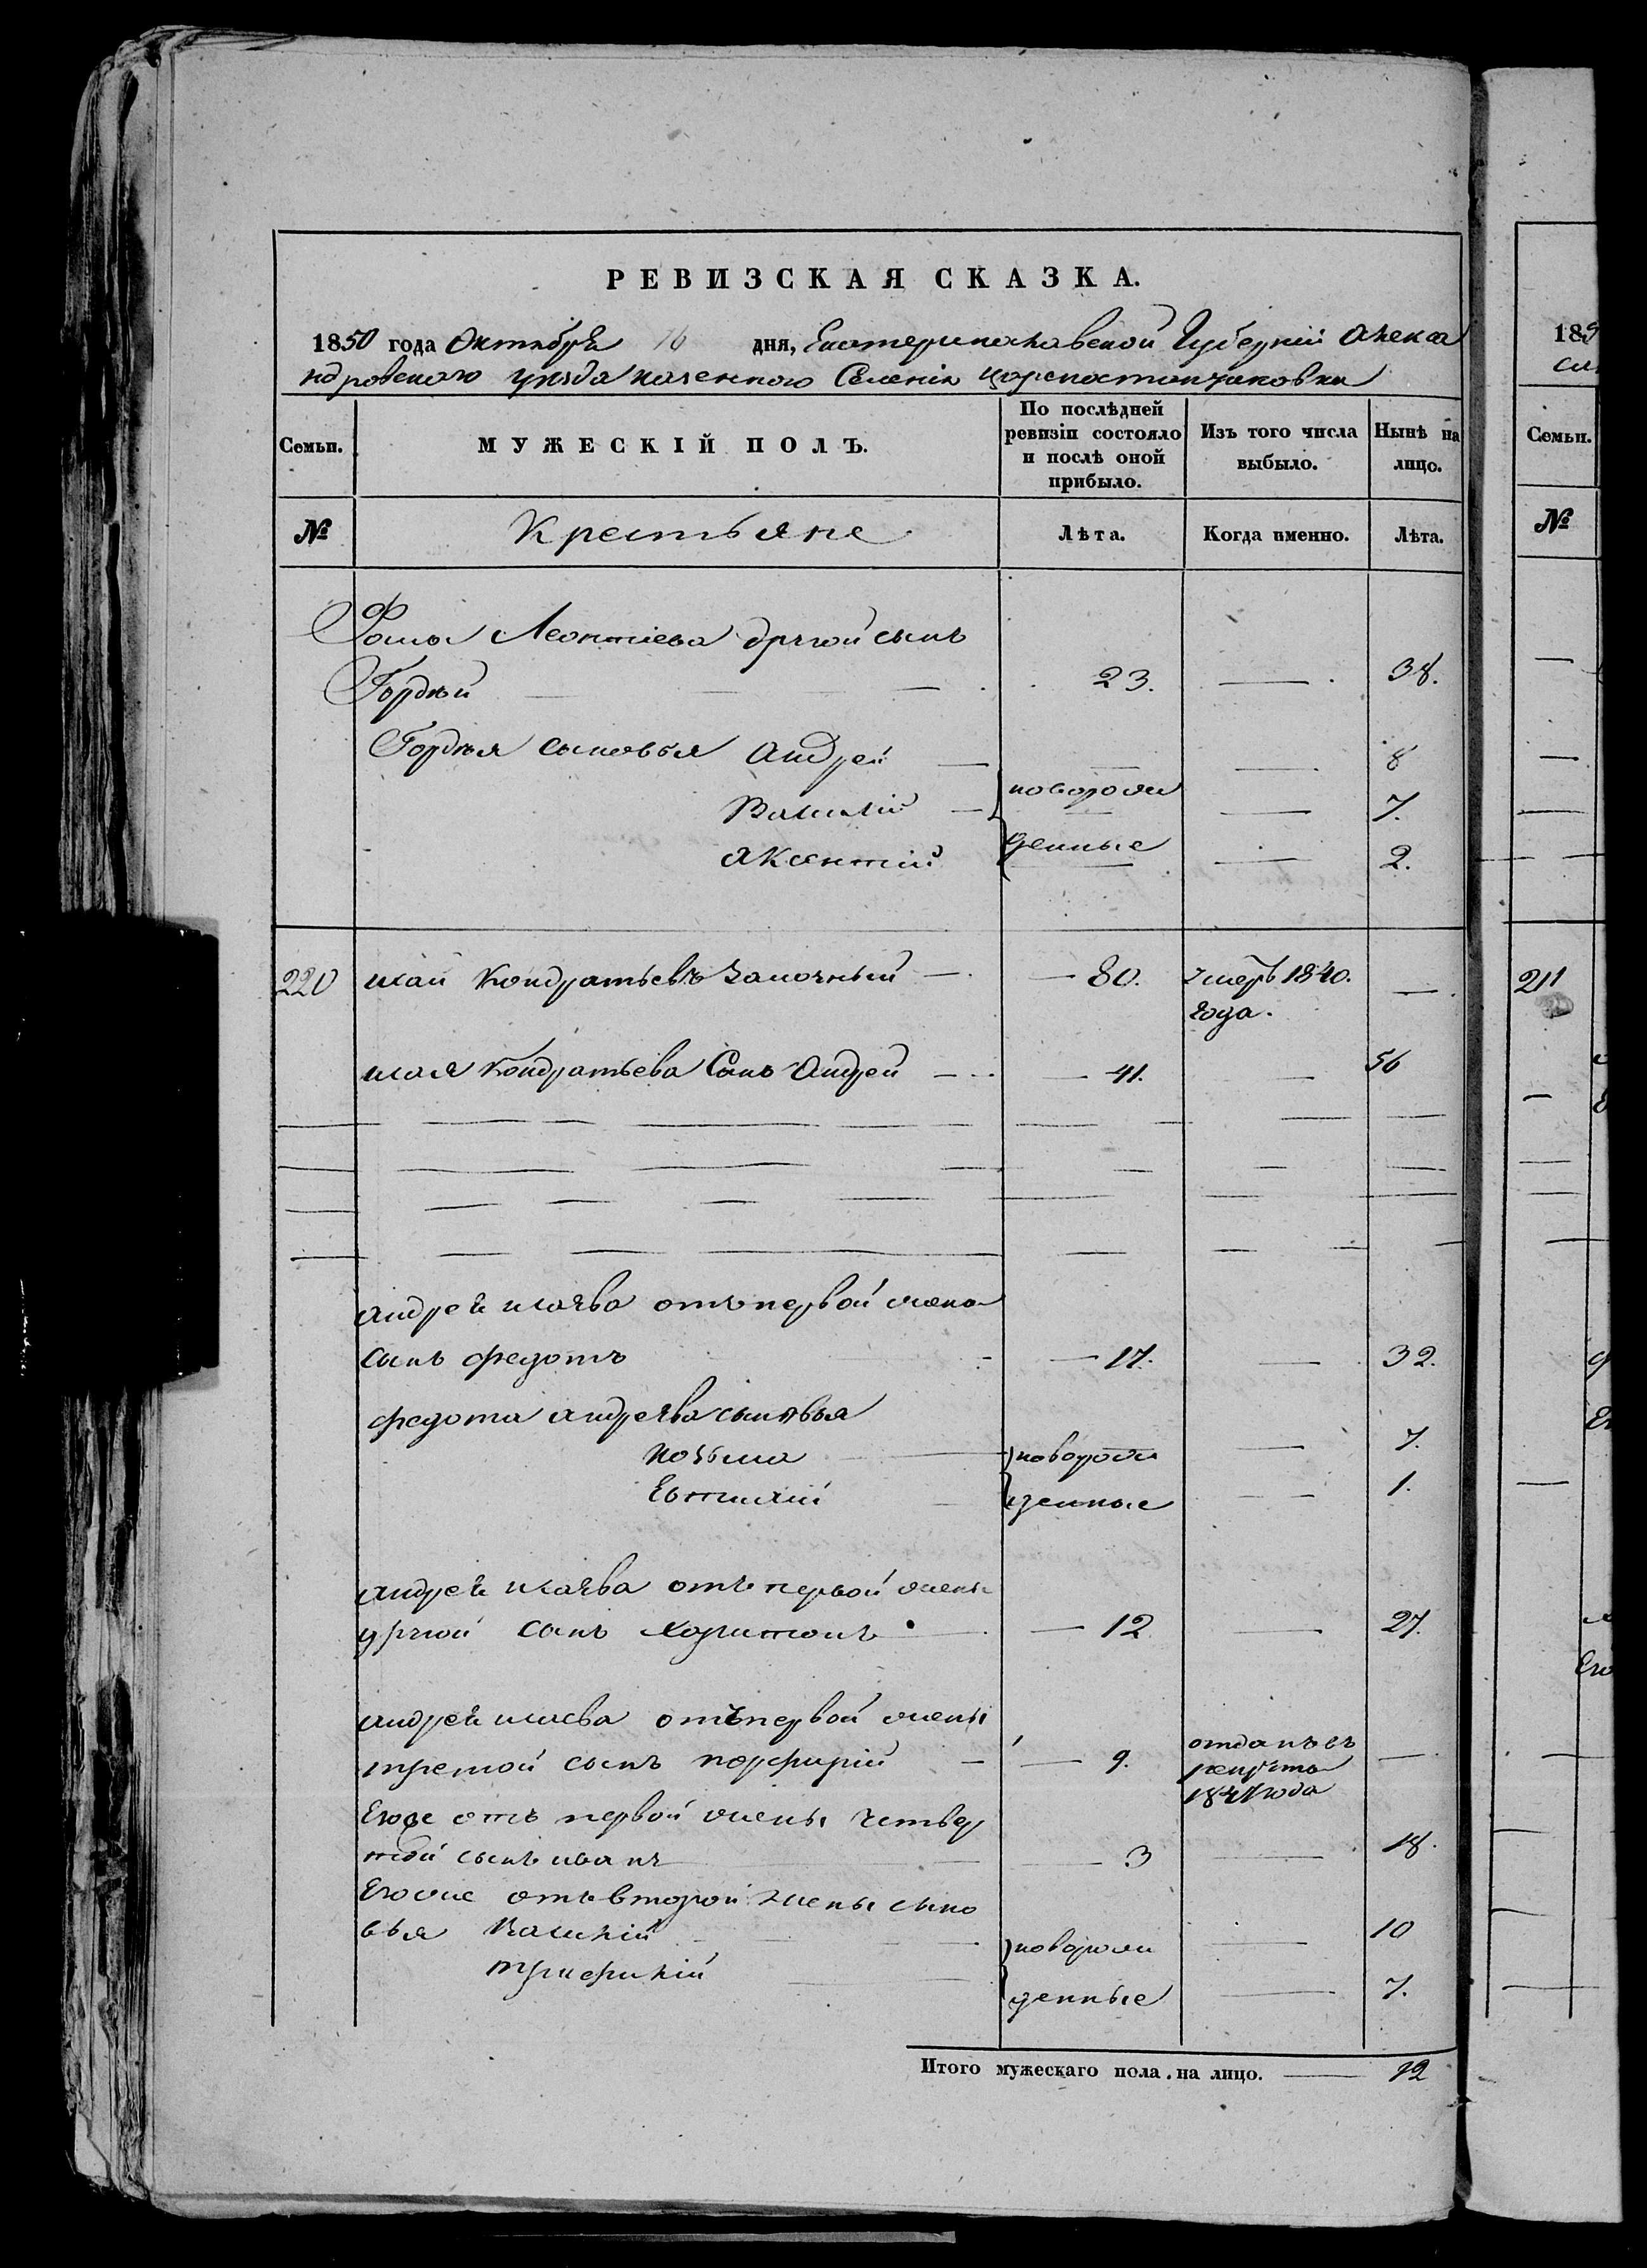 РЕВИЗСКАЯ СКАЗКА.
1850 года Октября 16 дня, Екатеринославской Губерніи Алекса
ндровского уезда казенного Селенія
Семьи.
МУЖЕСКІЙ ПОЛЪ.
По послѣдней ревизіи состояло и послѣ оной прибыло.
Изъ того числа выбыло.
Нынѣ на лицо.
№
Крестьяне
Лѣта.
Когда именно.
Лѣта.
Фомы Леонтіева другой сынъ
Гордѣй 23. 38.
Гордѣя сыновья Андрей 8
Василій новорож 7.
Аксентій денные 2.
220 Исай Кондратьевъ 80. умеръ 1840.
года.
Исая Кондратьева Сынъ Андрей 41. 56
Андрея Исаева отъ первой жены
сынъ Федотъ 17. 32.
Федота Андреева сыновья
Козьма новорож 7.
Евтихій денные 1.
Андрея Исаева отъ первой жены
другой сынъ Харитонъ 12 27.
Андрея Исаева отъ первой жены
третой сынъ Порфирій 9. отданъ въ
рекруты
1847 года
Егоже отъ первой жены четвер
той сынъ Иванъ 3 18.
Егоже отъ второй жены сыно
вья Василій новорож 10
Трифилій денные 7.
Итого мужескаго пола на лицо. 12
185
Семьи.
№
211